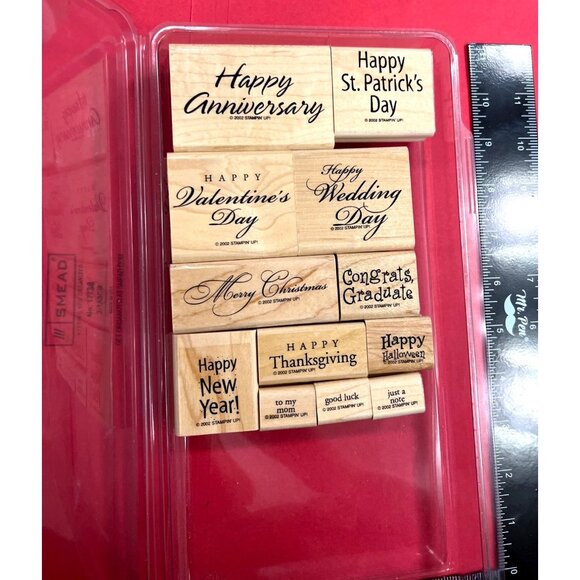 Happy
Anniversary
© 2002 STAMPIN' UP!
Happy
St. Patrick's
Day
© 2002 STAMPIN' UP!
HAPPY
Valentine's
Day
© 2002 STAMPIN' UP!
Happy
Wedding
Day
© 2002 STAMPIN' UP!
Merry Christmas
© 2002 STAMPIN' UP!
Congrats,
Graduate
© 2002 STAMPIN' UP!
Happy
New
Year!
© 2002 STAMPIN' UP!
HAPPY
Thanksgiving
© 2002 STAMPIN' UP!
Happy
Halloween
© 2002 STAMPIN' UP!
to my
mom
© 2002 STAMPIN' UP!
good luck
© 2002 STAMPIN' UP!
just a
note
© 2002 STAMPIN' UP!
SMEAD
Mr. Pen